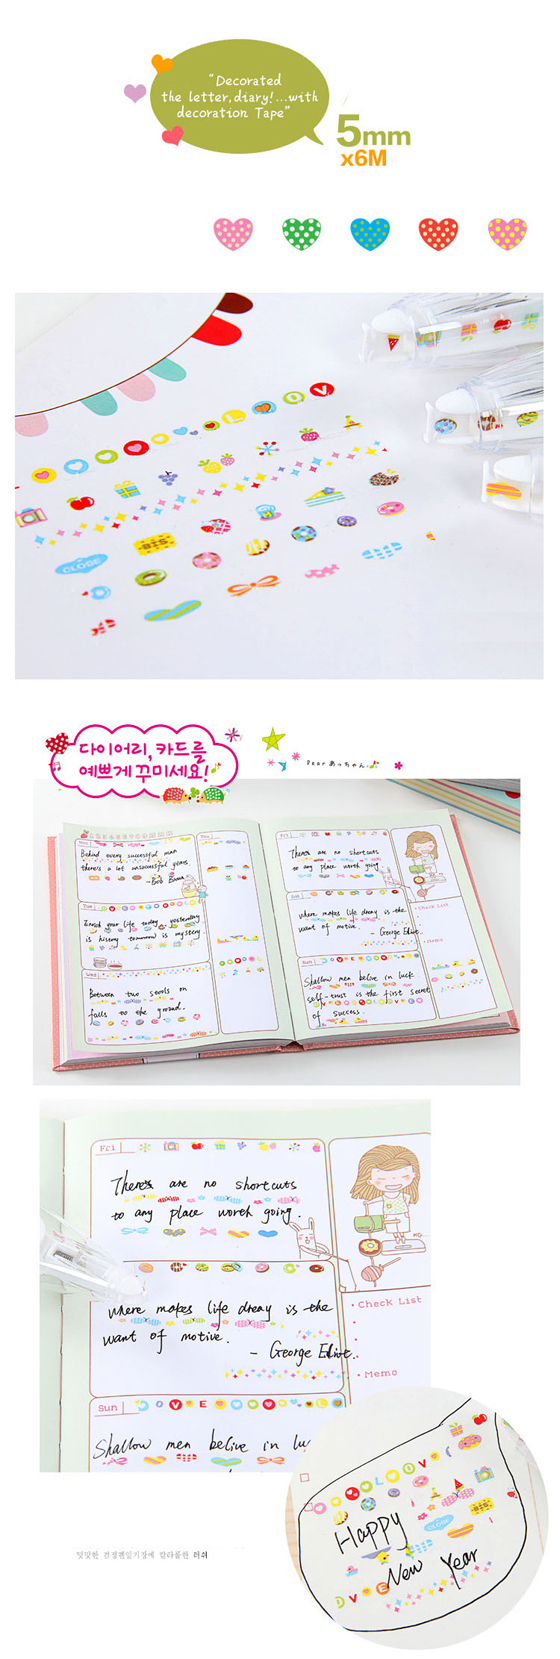 "Decorated
the letter, diary!...with
decoration Tape"
5mm
x6M
CLOSE
다이어리, 카드를
예쁘게 꾸미세요!
Dear あっちゃん
Behind every successful man
there's a lot unsuccessful years
- Bob Brown
Tue
is history tomorrow is mystery
Wed
Between two stools on
falls to the ground.
Fri
There's are no shortcuts
to any place worth going.
where makes life dreay is the
want of motive.
- George Eliot.
Check List
Memo
Sun
Shallow men belive in luck
self-trust is the first secret
of success.
Fri
There's are no shortcuts
to any place worth going.
where makes life dreay is the
want of motive.
- George Eliot.
Check List
Memo
Sun
LOVE
Shallow men belive in lu
Happy
New Year
밋밋한 검정펜일기장에 알라폴한 러쉬